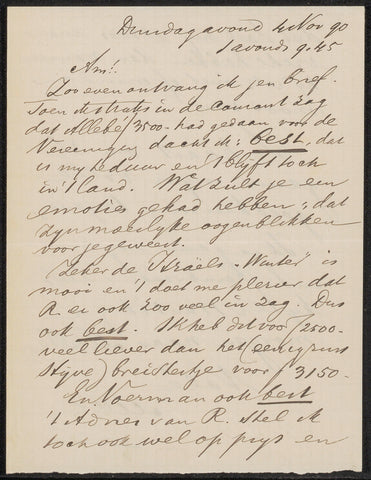 Dinsdagavond 4 Nov 90
's avonds 9.45
Am!.
Zooeven ontvang ik jen brief.
Toen ik straks in de courant zag
dat Allebé f 3500- had gedaan voor de
Vereeniging dacht ik: best, dat
is my te duur en 't blyft toch
in 't land. Wat zult je een
emoties gehad hebben; dat
zyn moeilyke oogenblikken
voor je geweest.
Zeker de Israëls "Winter" is
mooi en 't doet me plezier dat
R. er ook zoo veel in zag. Dus
ook best. Ik heb dat voor f 2500-
veel liever dan het (eenigszins
styve) breistertje voor f 3150-
En Voerman ook best
't Adres van R. stel ik
toch ook wel op prys en